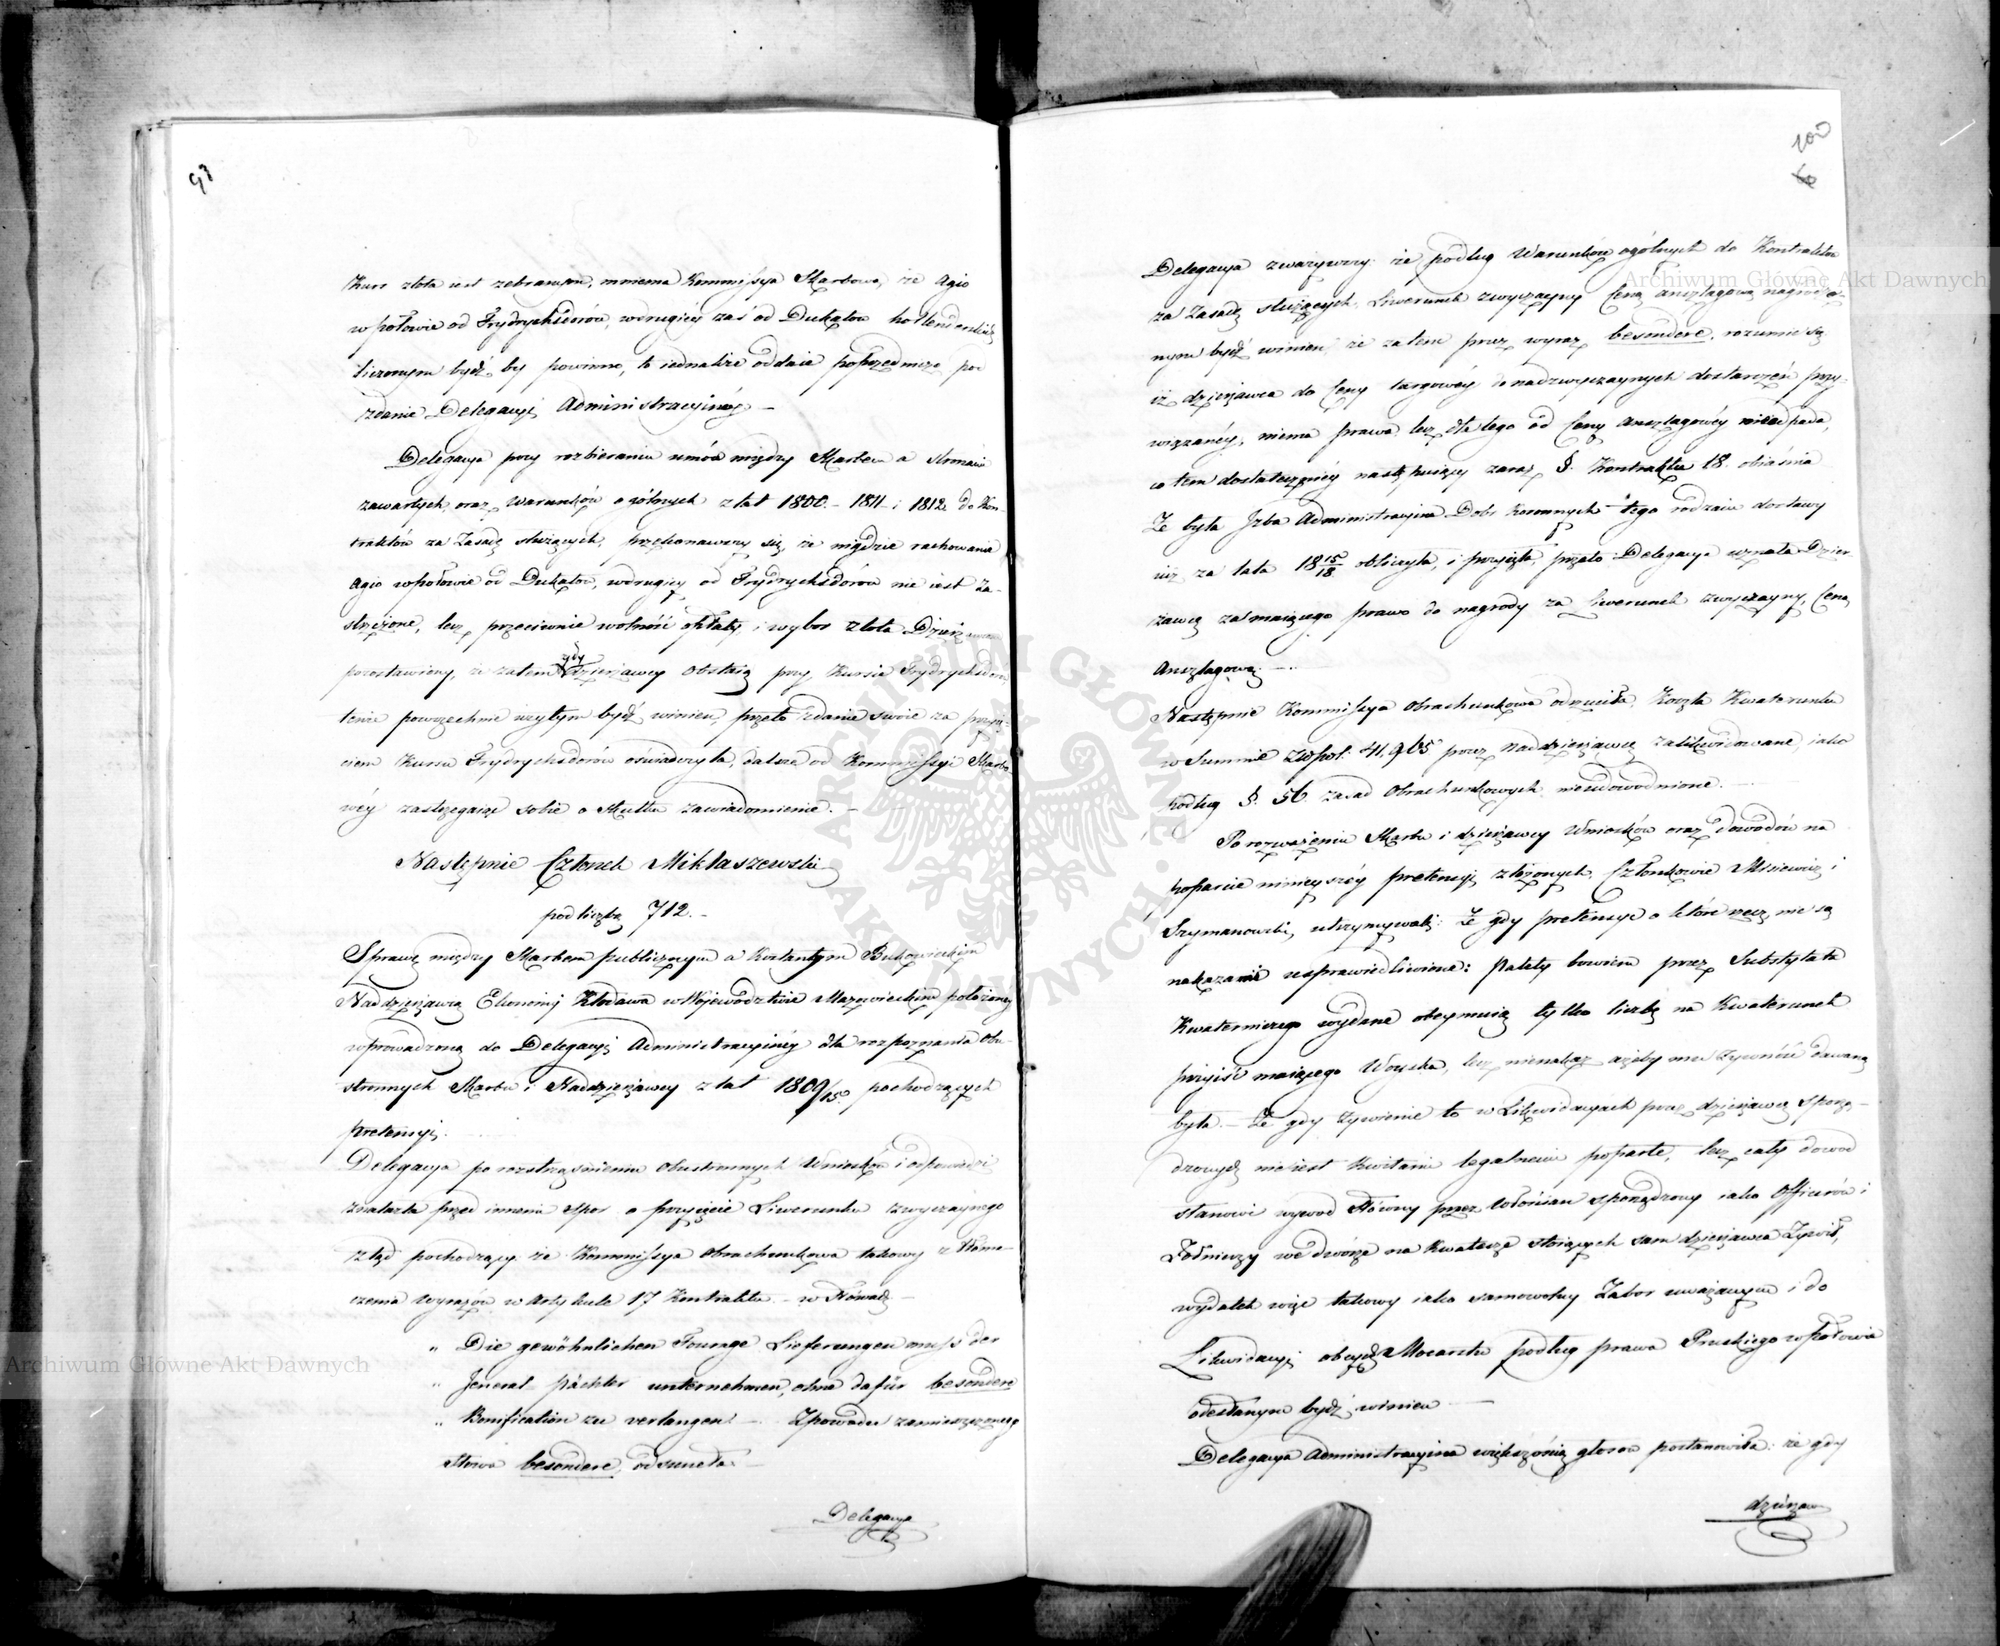 93
Kurs złota iest zebranym, mniema Kommissya Skarbowa, że Agio
w połowie od Frydrychsdorów, w drugiéy zaś od Dukatów hollenderskich
liczonym bydź by powinno, to iednakże oddaie poprzedniczo pod
zdanie Delegacyi Administracyinéy —
Delegacya przy rozbieraniu umów między Skarbem a stronami
zawartych, oraz Warunków ogólnych z lat 1800. – 1811 – i 1812 do Kon-
traktów za Zasadę służących, przekonawszy się, że nigdzie rachowanie
Agio w połowie od Dukatów, w drugiéy od Frydrychsdorów nie iest Za-
strzeżone, lecz przeciwnie wolność opłaty i wybor złota Dzierżawcom
pozostawiony, że zatem gdy Dzierżawcy obstaią przy Kursie Frydrychsdorów
tenże powszechnie użytym bydź winien, przeto zdanie swoie za przyię-
ciem Kursu Frydrychsdorów oświadczyła, dalsze od Kommissyi Skarbo-
wéy zastrzegaiąc sobie o skutku zawiadomienie. —
Następnie Członek Miklaszewski
pod liczbą 712. –
Sprawę między Skarbem publicznym a Kostantym Bukowieckim
Naddzierżawcą Ekonomij Kłodawa w Wojewódzctwie Mazowieckim położoney
wprowadzoną do Delegacyi Administracyinéy dla rozpoznania Obu-
stronnych Skarbu i Naddzierżawcy z lat 1809/15 pochodzących
pretensyi.
Delegacya po roztrząśnieniu Obustronnych Wniosków i odpowiedzi
znalazła przed innemi spor o przyięcie Liwerunku zwyczaynego
ztąd pochodzący że Kommissya Obrachunkowa takowy z tłoma-
czenia wyrazów w Artykule 17 Kontraktu – w słowach –
„ Die gewöhnlichen Fourage Lieferungen muss der
„ General-pächter unternehmen, ohne dafür besondere
„ Bonification zu verlangen. – Z powodu zamieszczonego
słowa besondere, odsunęła. –
Delegacya
100
6
Delegacya zważywszy że podług Warunków ogólnych do Kontraktów
za Zasadę służących, Liwerunek zwyczayny Ceną anszlagową nagrodzo-
nym bydź winien, że zatem przez wyraz besondere, rozumie się
iż dzierżawca do Ceny targowéy do nadzwyczaynych dostarczeń przy-
wiązanéy, niema prawa, lecz dla tego od Ceny Anszlagowéy nieodpada,
co tem dostateczniéy następuiący zaraz §. Kontraktu 18. obiaśnia
Że była Izba Administracyina Dobr Koronnych tego rodzaiu dostawy
iuż za lata 18 15/18 obliczyła, i przyięła, przeto Delegacya uznała Dzier-
żawcę za maiącego prawo do nagrody za Liwerunek zwyczayny, Ceną
Anszlagową. –
Następnie Kommissya Obrachunkowa odrzuciła, Koszta Kwaterunku
w Summie Złł pol: 41,965 przez Naddzierżawcę zalikwidowane, iako
podług §. 56 zasad Obrachunkowych nieudowodnione. –
Po rozważeniu Skarbu i dzierżawcy Wniosków oraz dowodów na
poparcie ninieyszéy pretensyi złożonych, Członkowie i
Szymanowski, utrzymywali: Że gdy pretensye o które rzecz, nie są
nakazami usprawiedliwione: Palety bowiem przez Substytuta
Kwaterniczego wydane obeymuią tylko liczbę na Kwaterunek
przyiść maiącego Woyska, lecz nienakaz ażeby mu żywność dawaną
była. – Że gdy żywienie to w Likwidacyach przez dzierżawcę sporzą-
dzonych nieiest Kwitami legalnemi poparte, lecz cały dowod
stanowi wywod słówny przez włościan sporządzony iako Officerów i
Żołnierzy we dworze na Kwaterze stoiących sam dzierżawca Żywił,
wydatek więc takowy iako samowolny Zabor uważanym i do
Likwidacyi obcych Mocarstw podług prawa Pruskiego w połowie
odesłanym bydź winien —
Delegacya Administracyina większością głosów postanowiła: że gdy
dzierżaw
Archiwum Główne Akt Dawnych
Archiwum Główne Akt Dawnych
ARCHIWUM GŁÓWNE AKT DAWNYCH